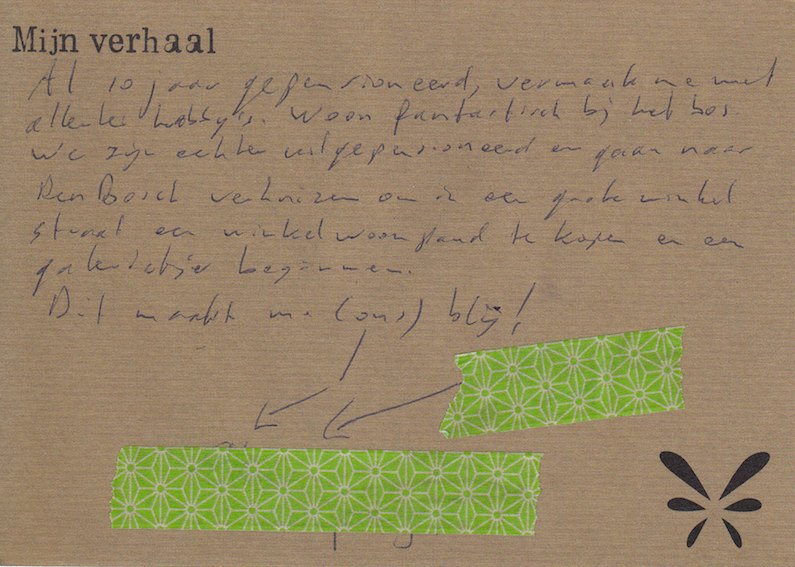 Mijn verhaal
Al 10 jaar gepensioneerd, vermaak me met
allerlei hobby's. Woon fantastisch bij het bos.
We zijn echter uitgepensioneerd en gaan naar
Den Bosch verhuizen om in een grote winkel
straat een winkelwoonpand te kopen en een
galerietje beginnen.
Dit maakt me (ons) blij!